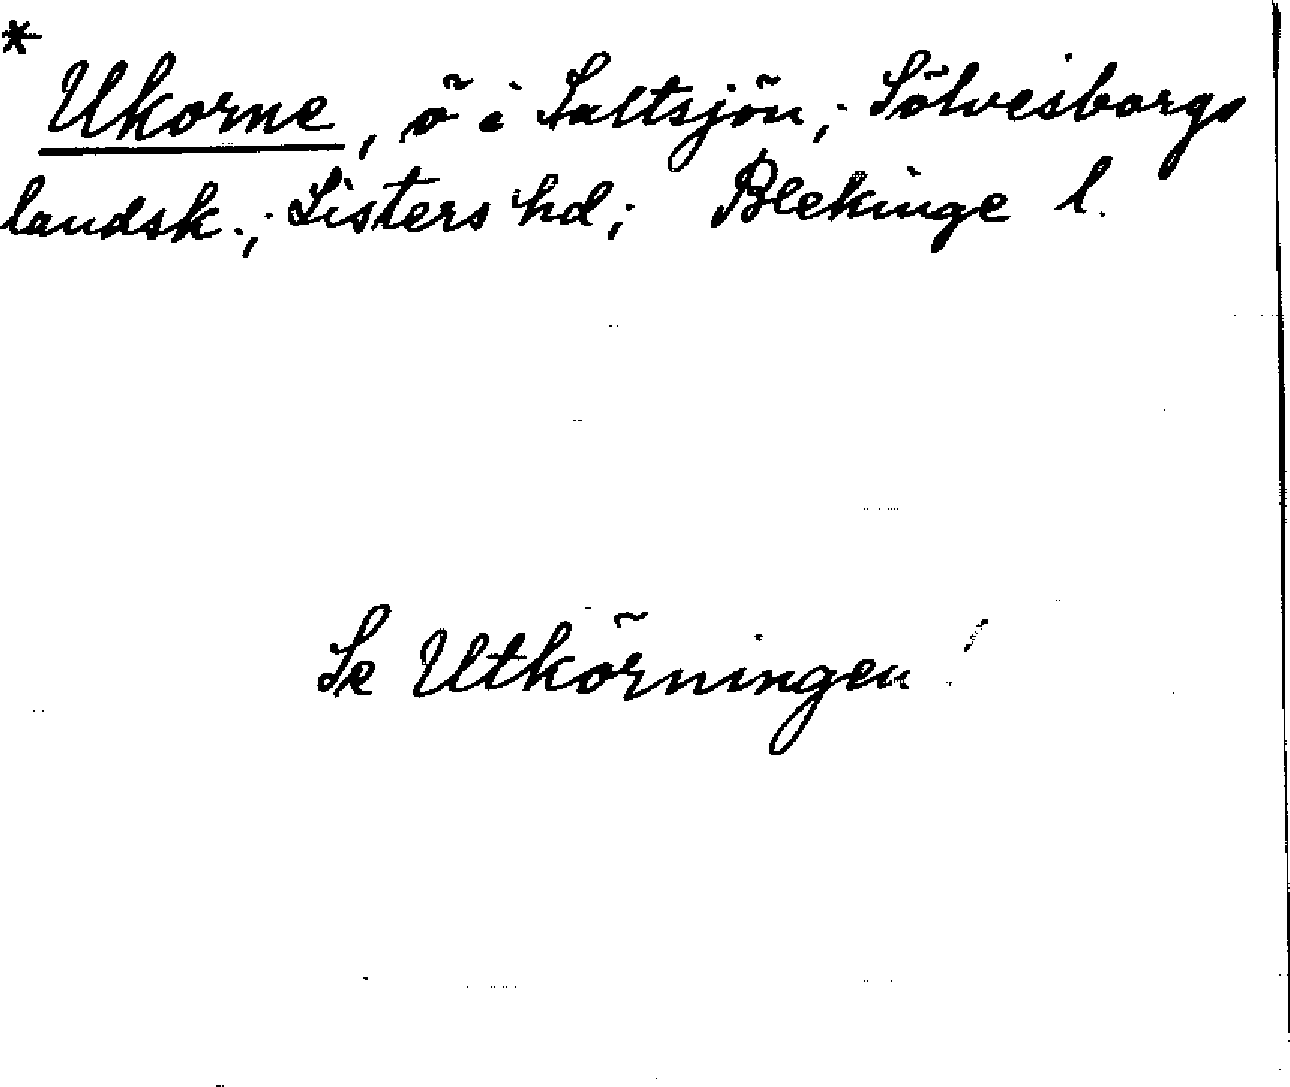 *
Ukorne, ö i Saltsjön; Sölvesborgs
landsk.; Listers hd; Blekinge l.
Se Utkörningen!